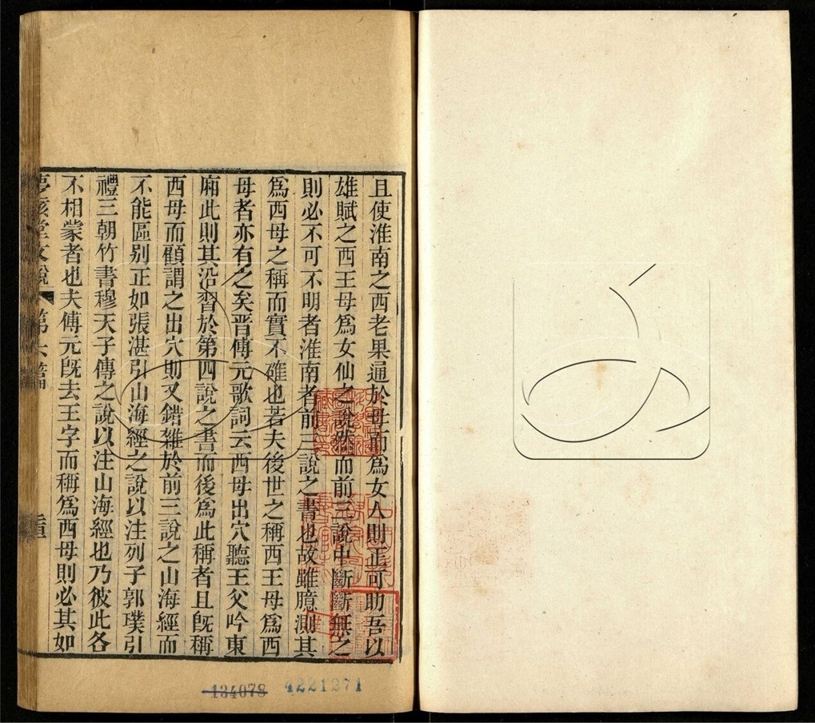 且使淮南之西老果通於母而為女人則正可助吾以
雄賦之西王母為女仙之說然而前三說中斷斷無之
則必不可不明者淮南者前三說之書也故雖臆測其
為西母之稱而實不確也若夫後世之稱西王母為西
母者亦有之矣晉傅元歌詞云西母出穴聽王父吟東
廂此則其沿習於第四說之書而後為此稱者且旣稱
西母而顧謂之出穴則又錯雜於前三說之山海經而
不能區別正如張湛引山海經之說以注列子郭璞引
禮三朝竹書穆天子傳之說以注山海經也乃彼此各
不相蒙者也夫傅元旣去王字而稱為西母則必其如
堂文說 第六篇
134078 4221271